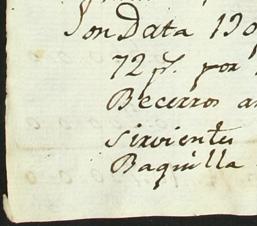 Son Data 190
72 p.s por
Becerros a
sirvientes
Baquilla